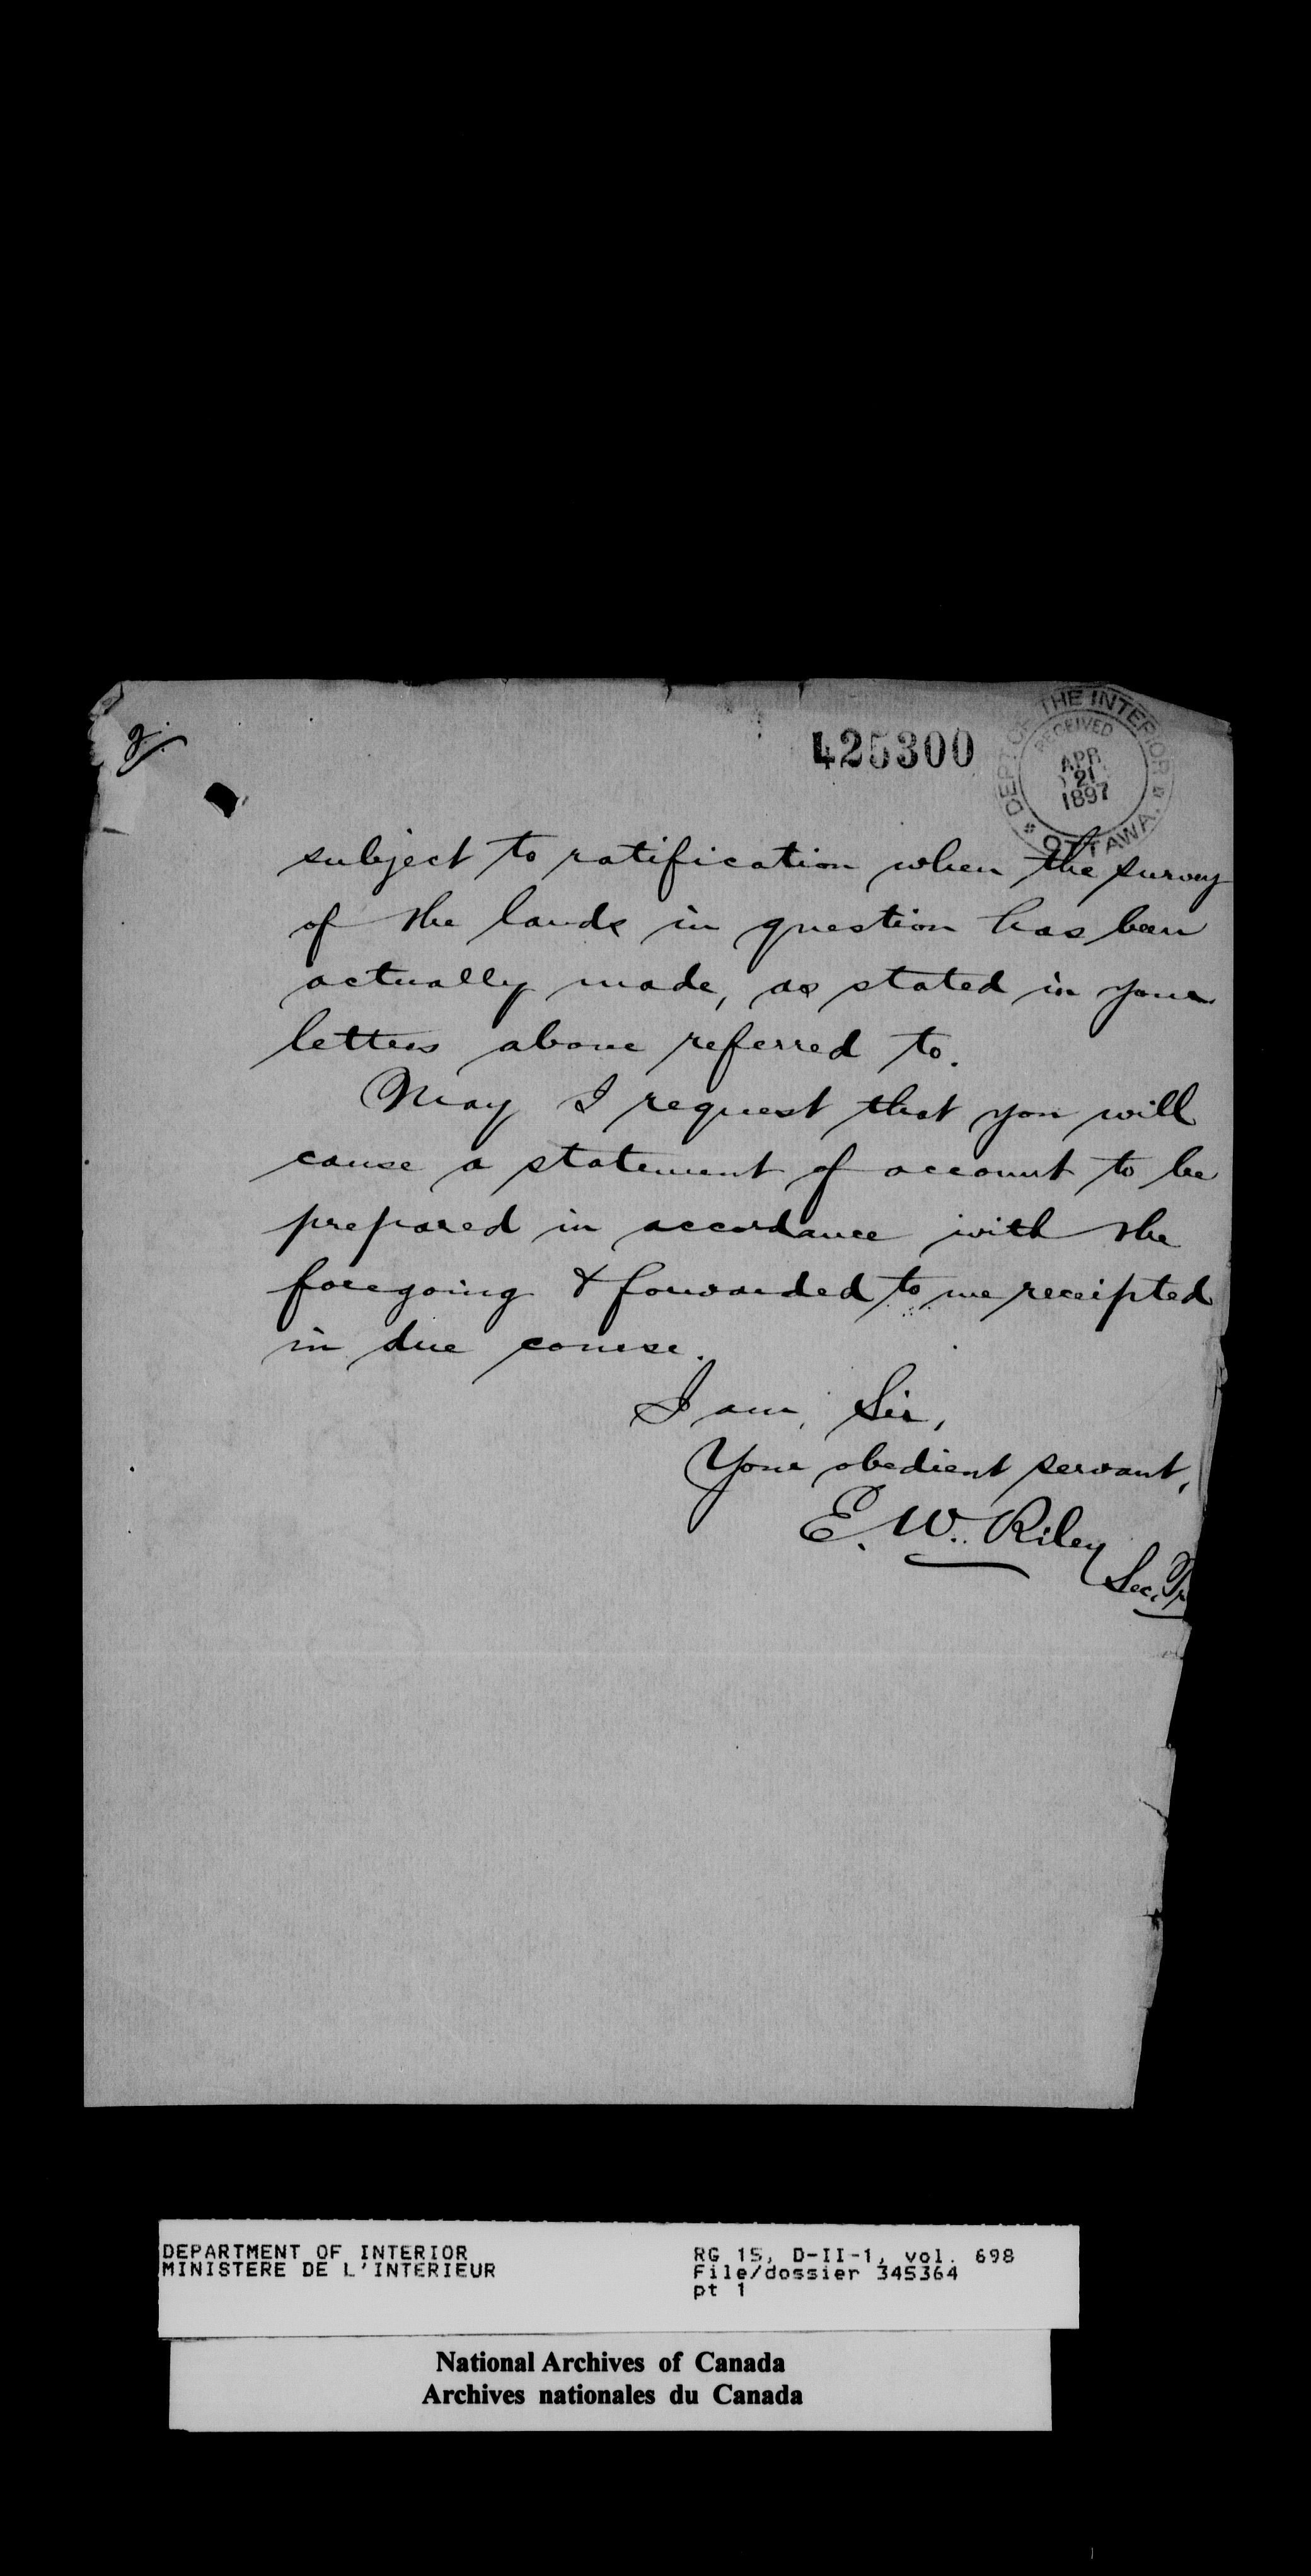 2.
425300
DEPT. OF THE INTERIOR
RECEIVED
APR.
21
1897
* OTTAWA. *
subject to ratification when the survey
of the lands in question has been
actually made, as stated in your
letters above referred to.
May I request that you will
cause a statement of account to be
prepared in accordance with the
foregoing & forwarded to me receipted
in due course.
I am, Sir,
Your obedient servant,
E. W. Riley
Sec. Tr
DEPARTMENT OF INTERIOR
MINISTERE DE L'INTERIEUR
RG 15, D-II-1, vol. 698
File/dossier 345364
pt 1
National Archives of Canada
Archives nationales du Canada